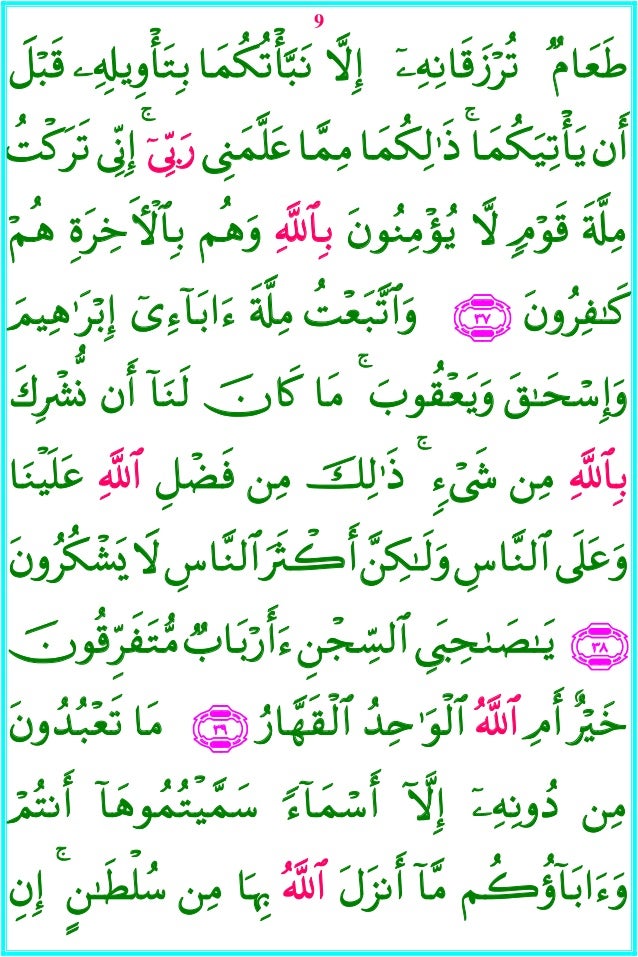 9
طَعَامٌ تُرْزَقَانِهِۦٓ إِلَّا نَبَّأْتُكُمَا بِتَأْوِيلِهِۦ قَبْلَ
أَن يَأْتِيَكُمَا ۚ ذَٰلِكُمَا مِمَّا عَلَّمَنِى رَبِّىٓ ۚ إِنِّى تَرَكْتُ
مِلَّةَ قَوْمٍ لَّا يُؤْمِنُونَ بِٱللَّهِ وَهُم بِٱلْءَاخِرَةِ هُمْ
كَـٰفِرُونَ ٣٧ وَٱتَّبَعْتُ مِلَّةَ ءَابَآءِىٓ إِبْرَٰهِيمَ
وَإِسْحَـٰقَ وَيَعْقُوبَ ۚ مَا كَانَ لَنَآ أَن نُّشْرِكَ
بِٱللَّهِ مِن شَىْءٍ ۚ ذَٰلِكَ مِن فَضْلِ ٱللَّهِ عَلَيْنَا
وَعَلَى ٱلنَّاسِ وَلَـٰكِنَّ أَكْثَرَ ٱلنَّاسِ لَا يَشْكُرُونَ
٣٨ يَـٰصَـٰحِبَىِ ٱلسِّجْنِ ءَأَرْبَابٌ مُّتَفَرِّقُونَ
خَيْرٌ أَمِ ٱللَّهُ ٱلْوَٰحِدُ ٱلْقَهَّارُ ٣٩ مَا تَعْبُدُونَ
مِن دُونِهِۦٓ إِلَّآ أَسْمَآءً سَمَّيْتُمُوهَآ أَنتُمْ
وَءَابَآؤُكُم مَّآ أَنزَلَ ٱللَّهُ بِهَا مِن سُلْطَـٰنٍ ۚ إِنِ